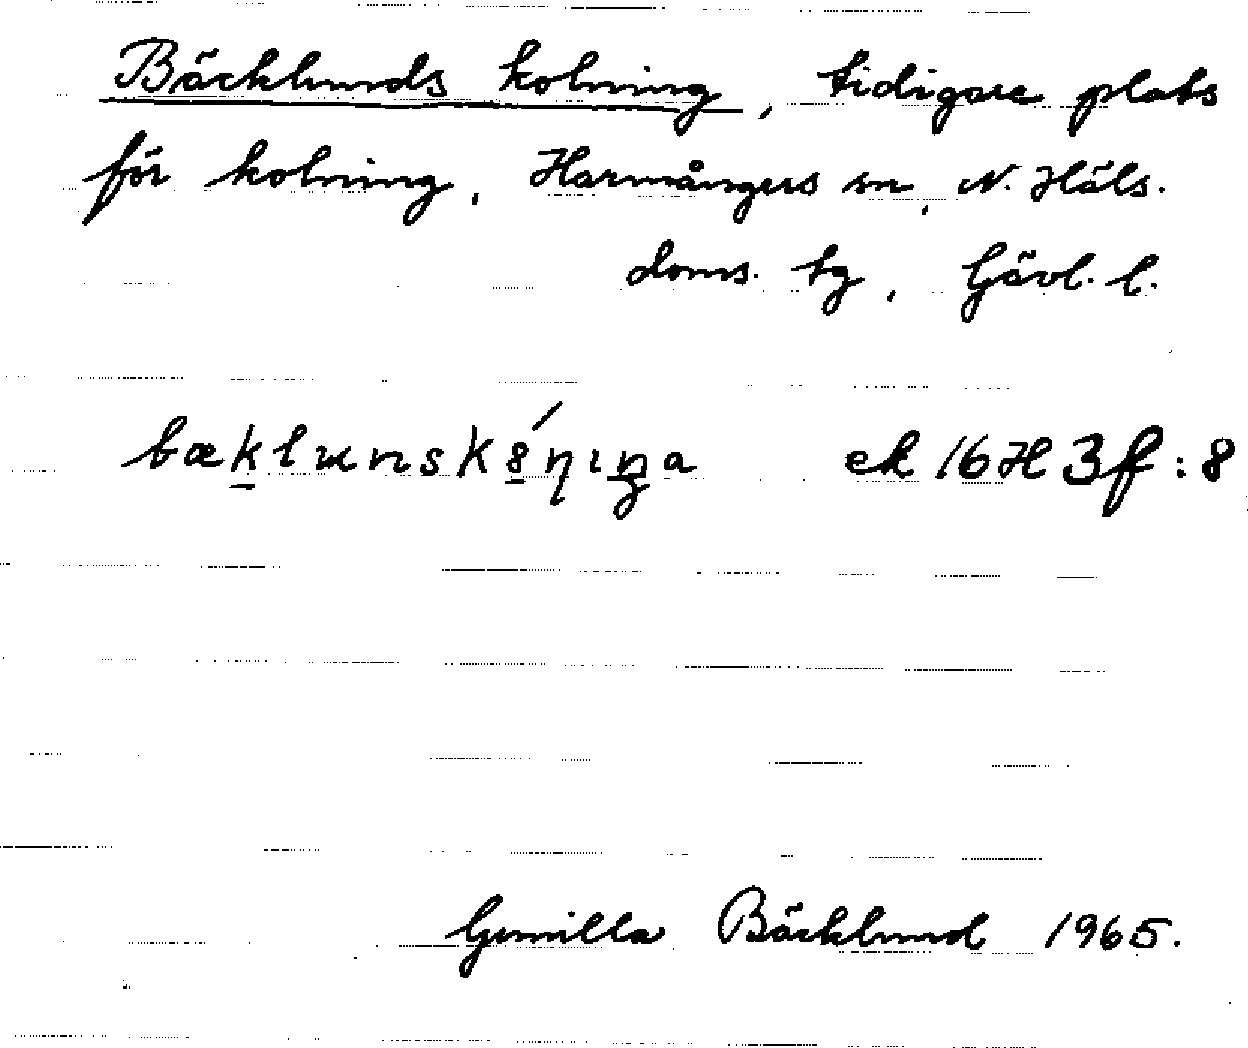 Bäcklunds kolning, tidigare plats
för kolning, Harmångers sn, N. Häls.
doms. tg, Gävl. l.
ek 16H 3f:8
Gunilla Bäcklund 1965.